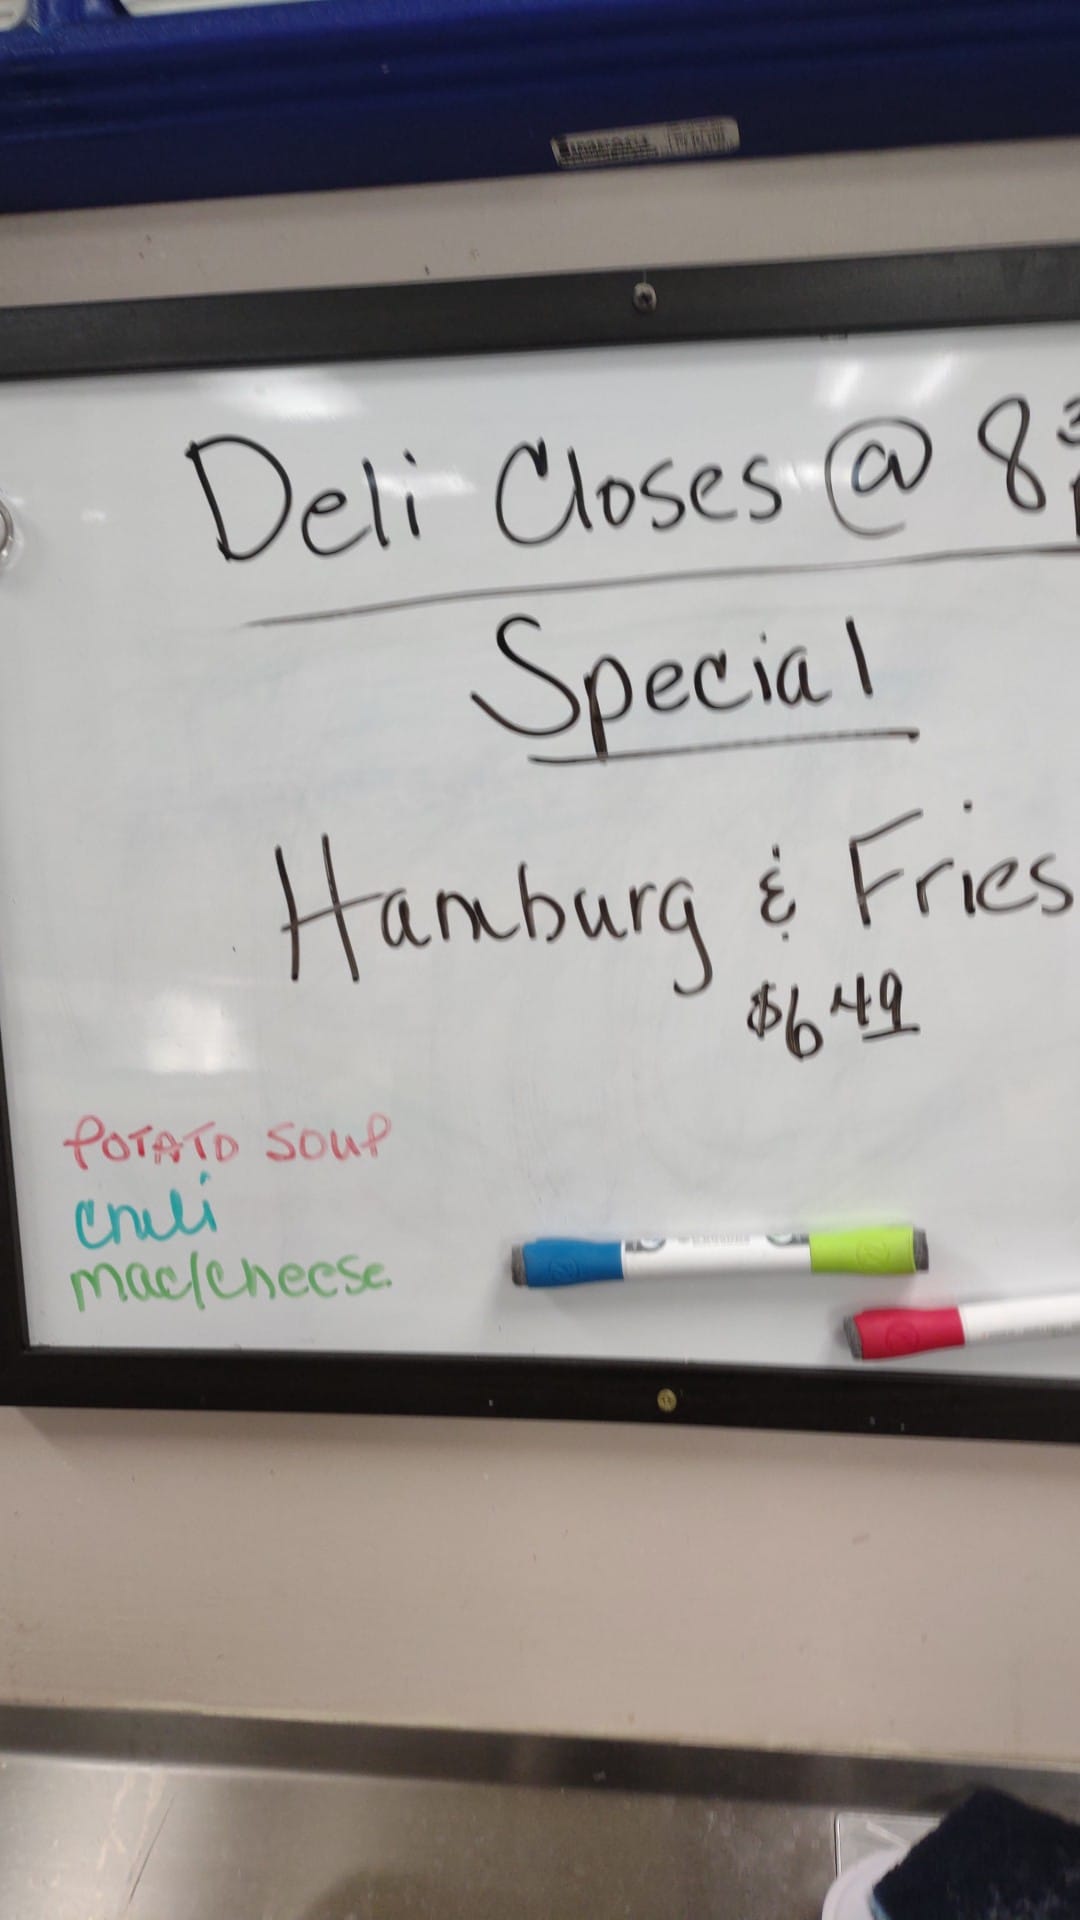 Deli Closes @ 8
Special
Hamburg & Fries
$6.49
POTATO SOUP
Chili
mac/cheese